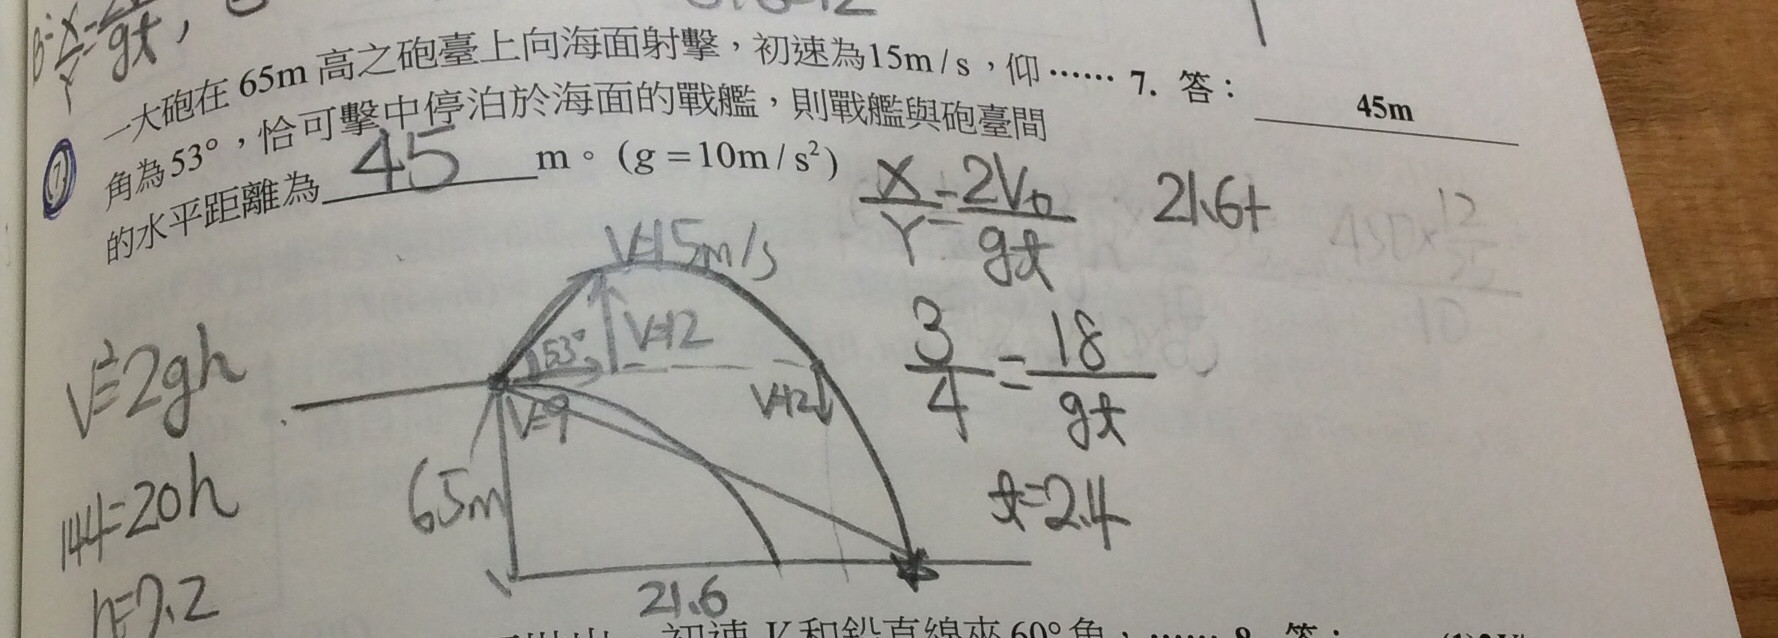 gt,
一大砲在 65m 高之砲臺上向海面射擊，初速為15m/s，仰…… 7. 答： 45m
⑦ 角為53°，恰可擊中停泊於海面的戰艦，則戰艦與砲臺間
的水平距離為 45 m。(g=10m/s²)
X/Y=2V₀/gt 21.6+
V=15m/s
V=12
53°
V=9
V=12
V²=2gh
3/4=18/gt
65m
144=20h
t=2.4
h=7.2
21.6
初速 V 和鉛直線夾60°角，…… 8. 答：